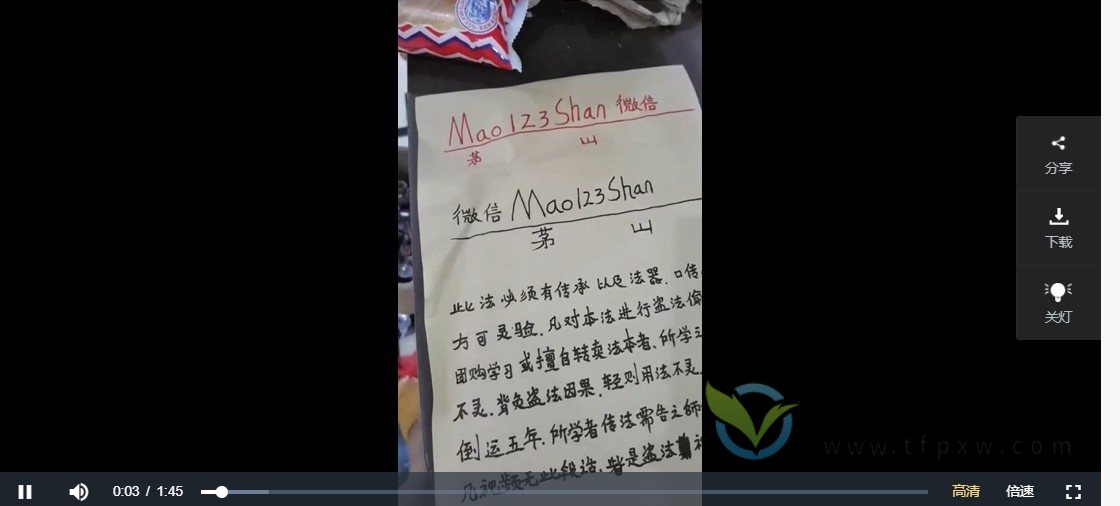 Mao123Shan 微信
茅 山
微信 Mao123Shan
茅 山
此法必须有传承以及法器.口传
方可灵验.凡对本法进行盗法偷
团购学习或擅自转卖法本者.所学
不灵.背负盗法因果.轻则用法不灵.
倒运五年.所学者传法需告之師
凡视频无此段造.皆是盗法
分享
下载
关灯
www.tfpxw.com
0:03 / 1:45
高清
倍速